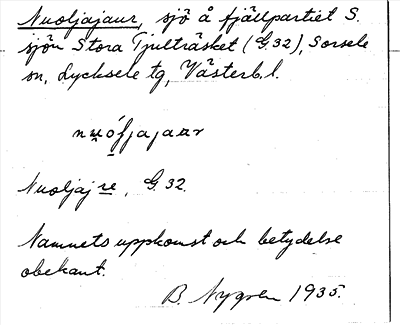 Nuoljajaur, sjö å fjällpartiet S.
sjön Stora Tjulträsket (G.32), Sorsele
sn, Lycksele tg, Västerb. l.
nuóľjajaur
Nuoljajre, G. 32.
Namnets uppkomst och betydelse
obekant.
B. Nygren 1935.